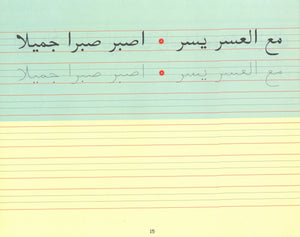 مع العسر يسر • اصبر صبرا جميلا
مع العسر يسر • اصبر صبرا جميلا
15